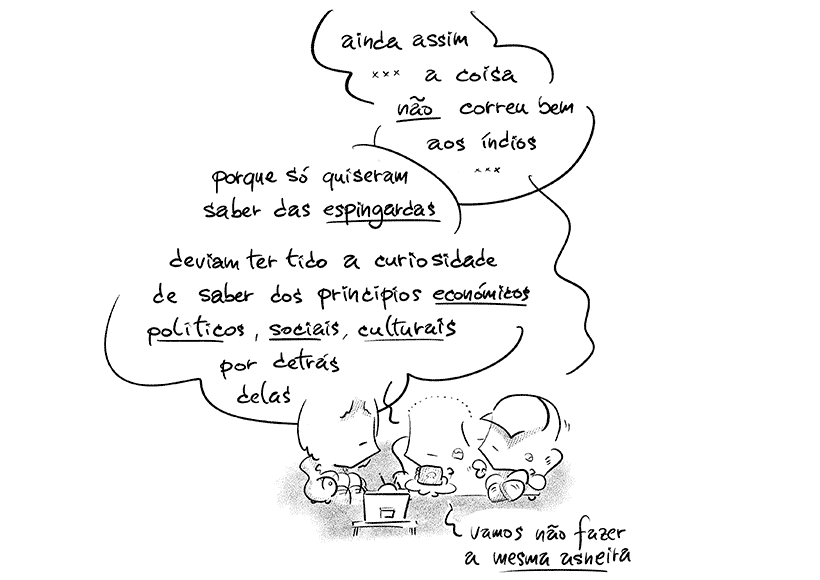 ainda assim
××× a coisa
não correu bem
aos índios
×××
porque só quiseram
saber das espingardas
deviam ter tido a curiosidade
de saber dos princípios económicos
políticos, sociais, culturais
por detrás
delas
vamos não fazer
a mesma asneira